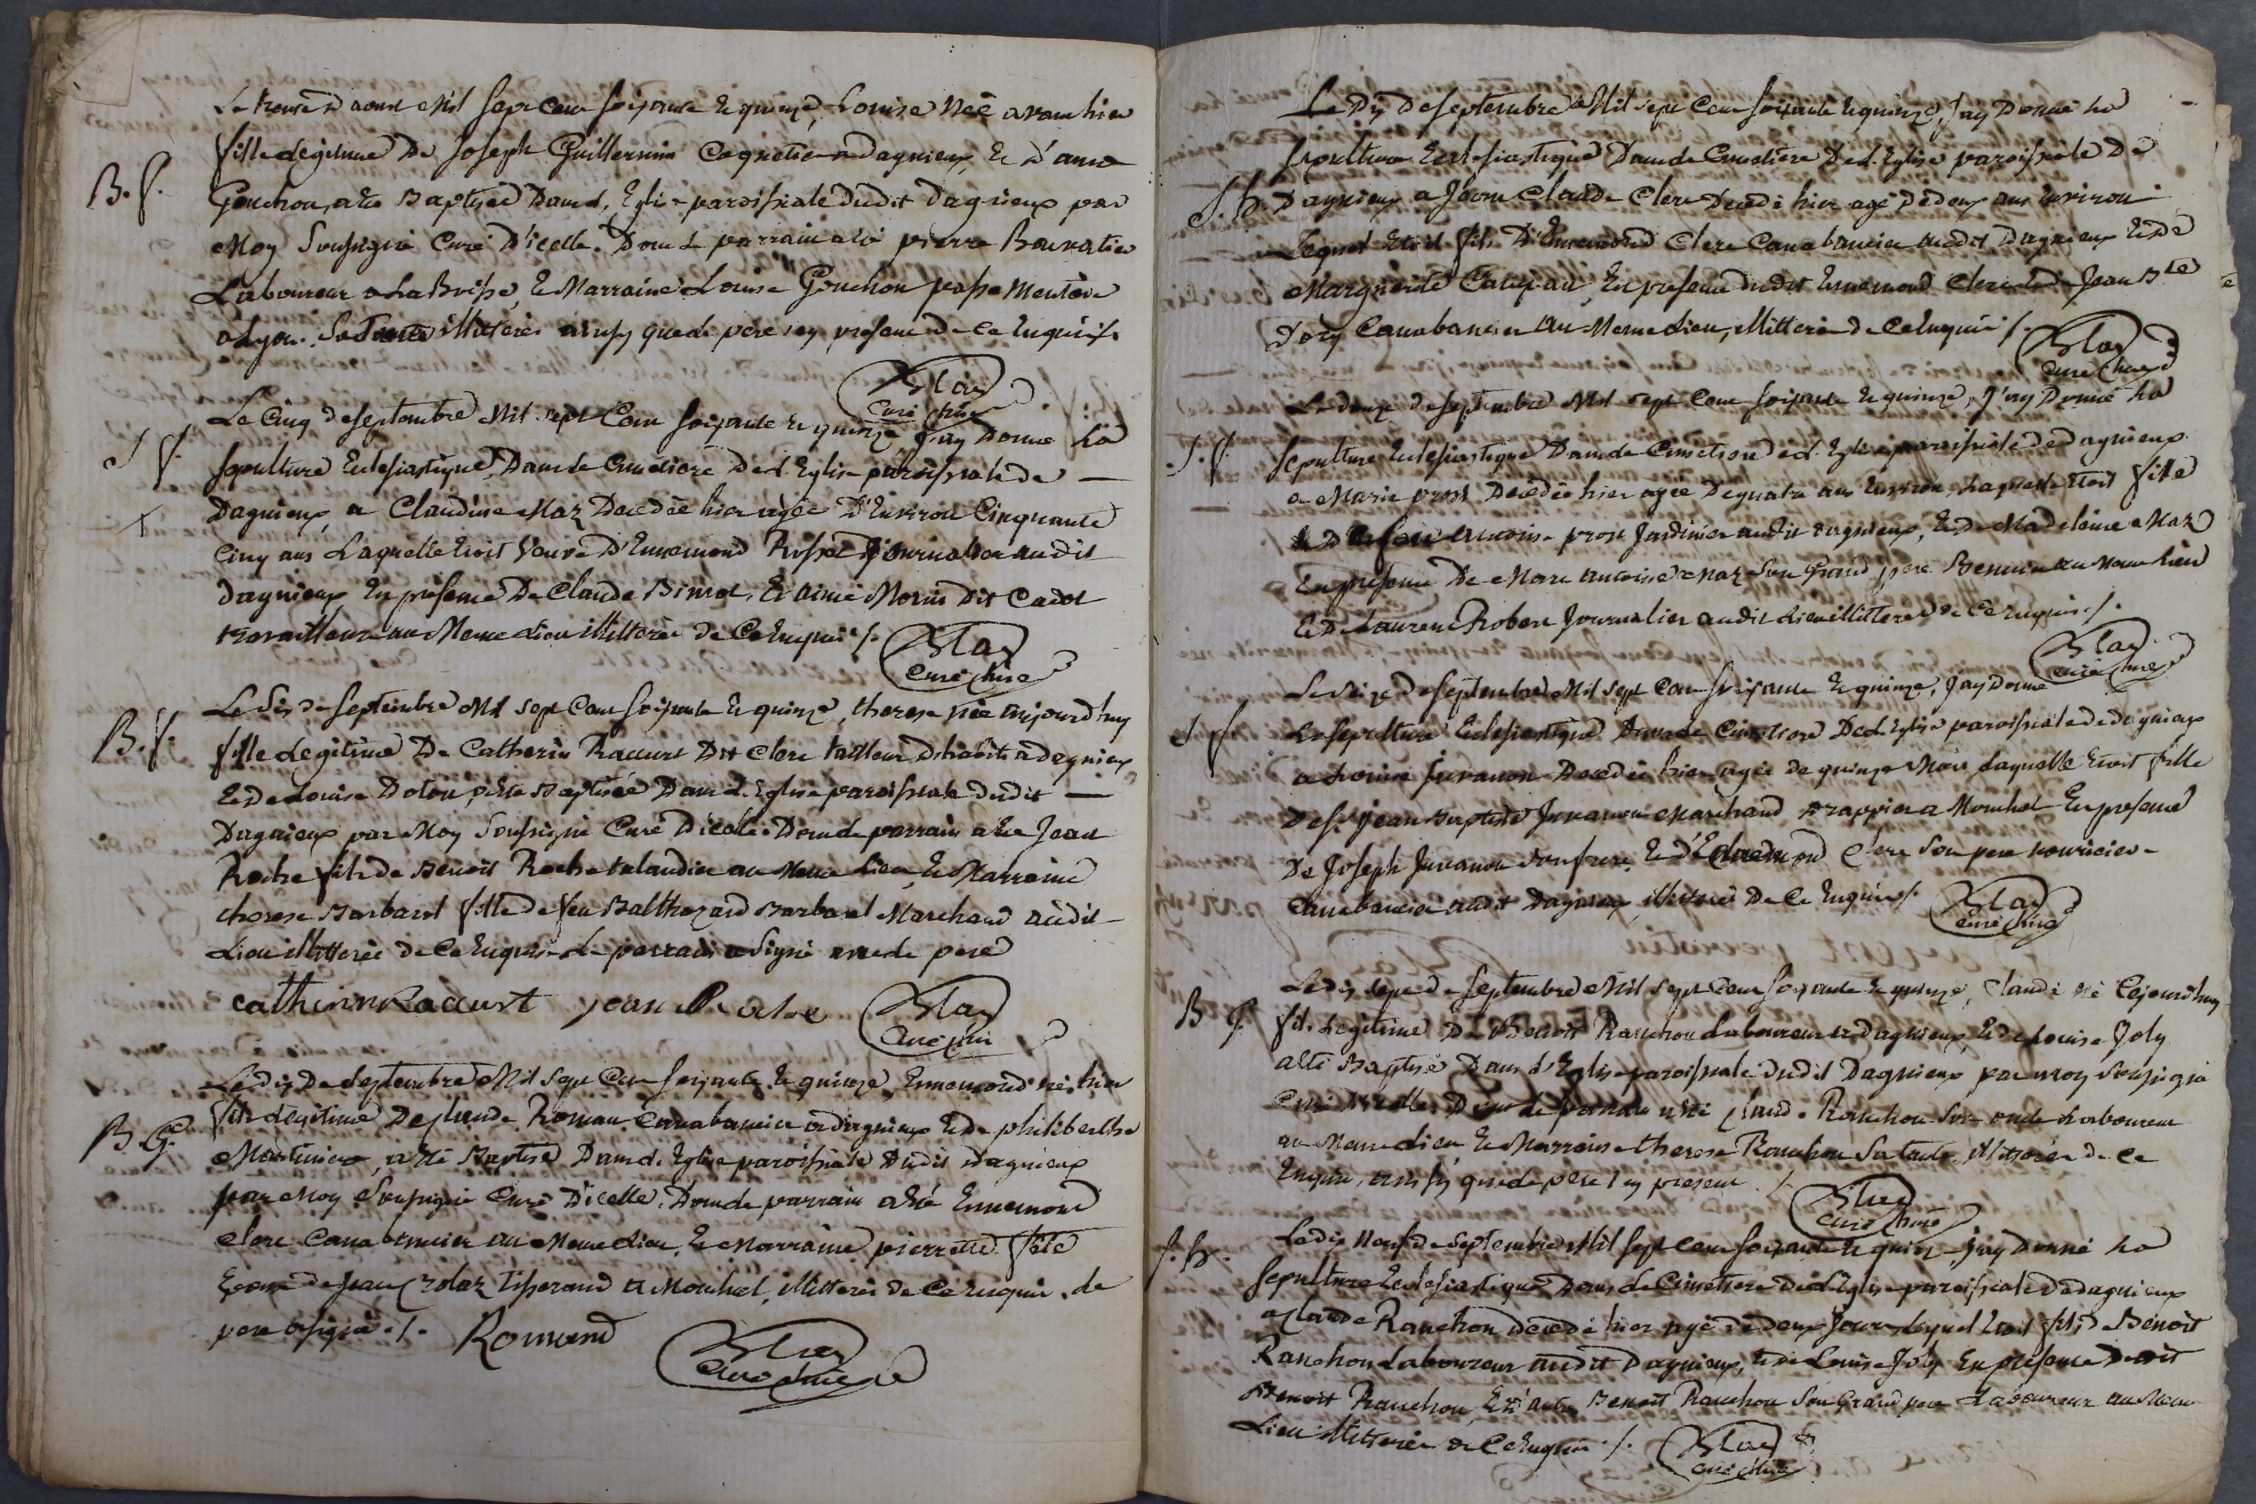 Le trente d'aoust Mil sept cent soixante et quinze, Louise Née avant hier
B. f. fille légitime De Joseph Guillermin Coquetier a dagnieux, et D'anne
Gonchon, a été Baptisée Dans l'Eglise paroissiale dudit dagnieux par
Moy Soussigné Curé D'icelle. Dont le parrain a été pierre
Laboureur a La Boisse, et Marraine Louise Gonchon passementière
a Lyon. illitérés ainsy que le père icy présent de ce enquis /.
Blay
curé
Le Cinq de septembre Mil sept Cent soixante et quinze J'ay Donné La
S f. sepulture Ecclesiastique Dans le Cimetiere de l'Eglise paroissiale de —
+ Dagnieux, a Claudine Maz Decedée hier agée D'Environ Cinquante
Cinq ans Laquelle Etoit Veuve D'Ennemond Journalier audit
dagnieux, En présence De Claude Et aimé Morin Dit Cadet
travailleurs au Meme Lieu illitérés de Ce Enquis /.
Blay
curé
Le Six de septembre Mil sept Cent soixante et quinze, therese née aujourd'huy
B. f. fille Legitime De Catherin Raccurt Dit Clerc tailleur D'habits a dagnieux
et de Louise Doton, a été Baptisée Dans l'Eglise paroissiale dudit —
Dagnieux par Moy Soussigné Curé D'icelle. Dont le parrain a été Jean
Roche fils de Benoit Roche taland­ier au Meme Lieu, et Marraine
therese Barbarel fille de feu Balthazard Barbarel Marchand audit
Lieu illitérée de Ce Enquise Le parrain a Signé avec le pere
catherin Raccurt jean Roche Blay
curé
Le dix De Septembre Mil sept Cent soixante et quinze, Ennemond né hier
B. G. fils Légitime De Claude Roman Canabancier a dagnieux et de philiberthe
a été Baptisé Dans l'Eglise paroissiale Dudit dagnieux
par Moy Soussigné Curé D'icelle. Dont le parrain a été Ennemond
Clerc Canabancier au Meme Lieu, et Marraine pierrette
femme de Jean tisserand a Montluel, illitérés de Ce Enquis. le
pere a signé ./. Romand
Blay
curé
Le Dix De septembre Mil sept Cent soixante et quinze, J'ay Donné La
sepulture Ecclesiastique Dans le Cimetiere De l'Eglise paroissiale De
S. G. Dagnieux a Jean Claude Clerc Decedé hier agé de deux ans environ
Lequel Etoit fils D'Ennemond Clerc Canabancier audit Dagnieux et de
Marguerite En presence dudit Ennemond Clerc et de Jean Bte
Canabancier au Meme Lieu, illitérés de Ce Enquis /.
Blay
curé
Le douze de septembre Mil sept Cent soixante et quinze, J'ay Donné La
S. f. sepulture Ecclesiastique Dans le Cimetiere de l'Eglise paroissiale de dagnieux
a Marie prost Decedée hier agée De quatre ans Environ, Laquelle Etoit fille
Antoine prost Jardinier audit dagnieux, et de Madelaine Maz
En presence De Marc antoine Maz son Grand pere au Meme Lieu
et De Laurent Robert Journalier audit Lieu illitérés de Ce Enquis ./.
Blay
curé
Le Seize de septembre Mil sept Cent soixante et quinze, J'ay Donné
S f La sepulture Ecclesiastique Dans le Cimetiere De l'Eglise paroissiale de dagnieux
a Juvanon Decedée hier agée de quinze Mois Laquelle Etoit fille
De Sr jean Baptiste Juvanon Marchand Drappier a Montluel En presence
De Joseph Juvanon son frere, et D'Ennemond Clerc Son pere nourricier
Canabancier audit Dagnieux, illitérés De Ce Enquis /.
Blay
curé
Le dix sept de septembre Mil sept Cent soixante et quinze, Claude né Cejourd'huy
B G. fils Legitime De Benoit Ranchon Laboureur a dagnieux, et de Louise Joly
a été Baptisé Dans l'Eglise paroissiale dudit Dagnieux par moy soussigné
Curé D'icelle, Dont le parrain a été Claude Ranchon Son oncle Laboureur
au Meme Lieu, et Marraine therese Ranchon Sa tante, illitérés de Ce
Enquis, ainsy que le pere icy present ./.
Blay
curé
Le dix Neuf de septembre Mil sept Cent soixante et quinze, J'ay Donné La
S. G. sepulture Ecclesiastique Dans le Cimetiere De l'Eglise paroissiale De dagnieux
a Claude Ranchon decedé hier agé de deux Jours Lequel Etoit fils de Benoit
Ranchon Laboureur audit Dagnieux, et de Louise Joly En presence Dudit
Benoit Ranchon, Et d'autre Benoit Ranchon Son Grand pere Laboureur au Meme
Lieu illitérés de Ce Enquis ./.
Blay
curé